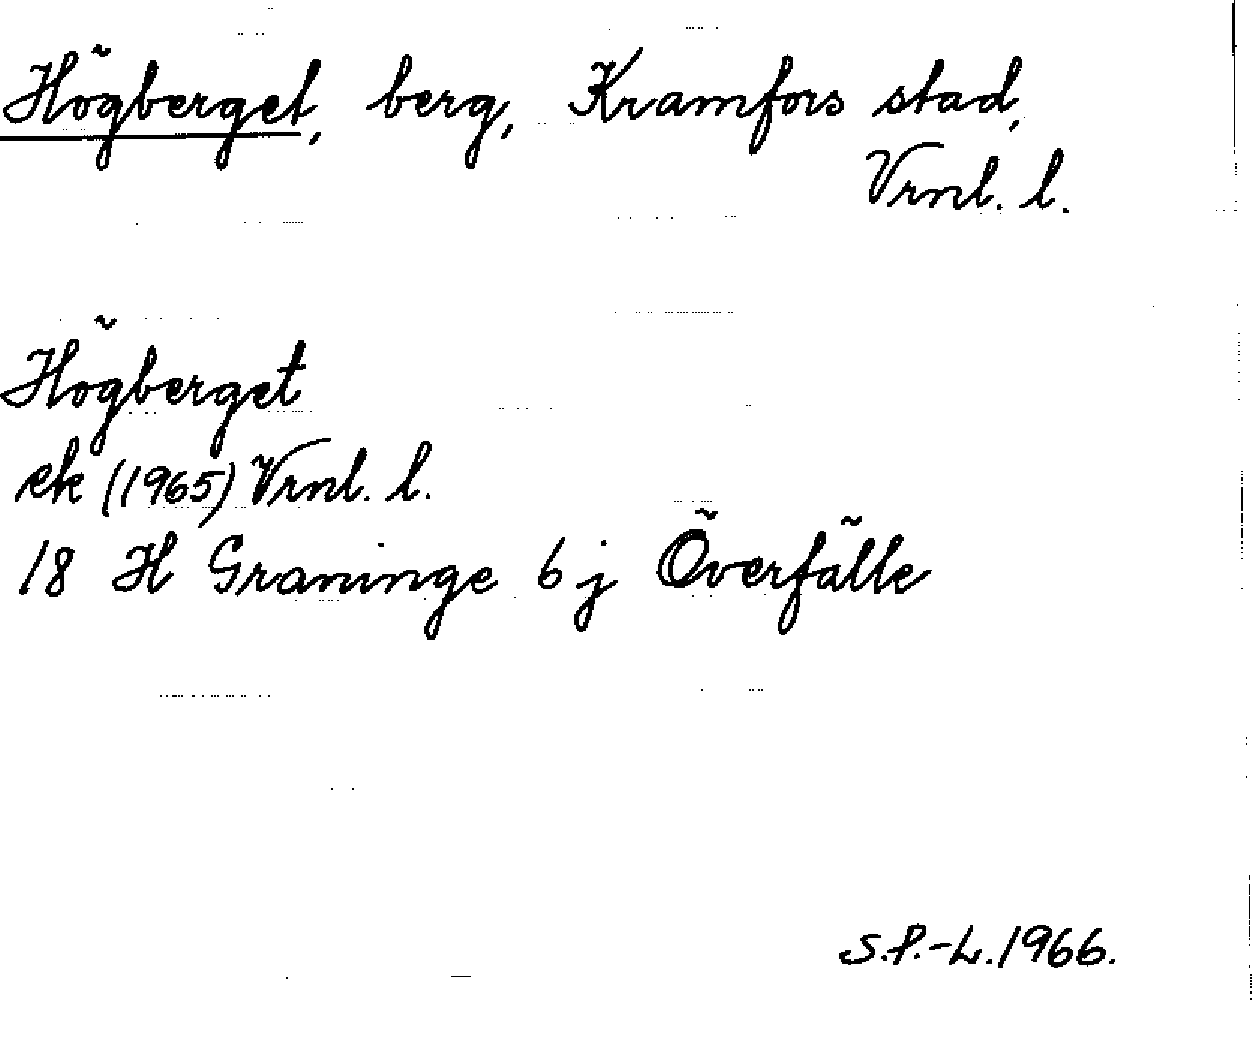 Högberget, berg, Kramfors stad,
Vrnl. l.
Högberget
ek (1965) Vrnl. l.
18 H Graninge 6 j Överfälle
S.P.-L. 1966.